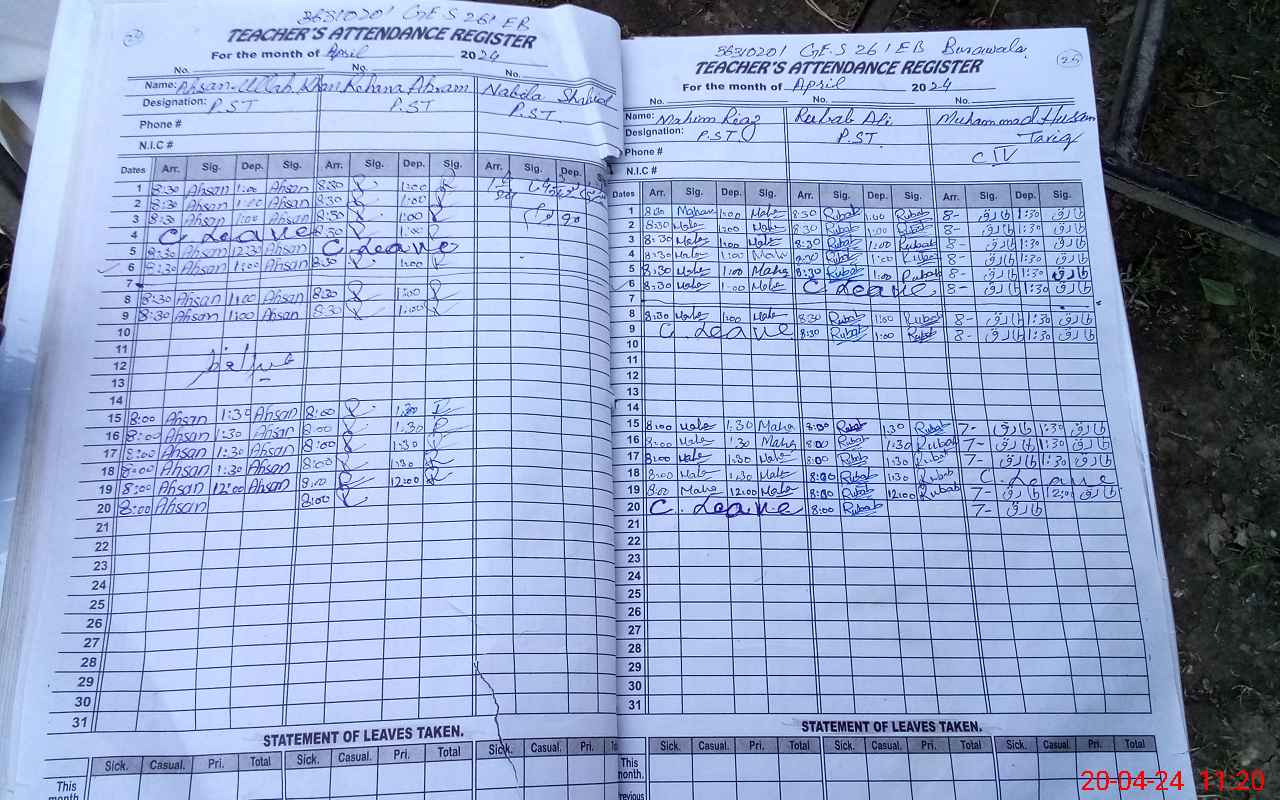 36310201 G.E.S 261 EB
TEACHER'S ATTENDANCE REGISTER
For the month of April 2024
No. No. No.
Name: Ahsan-Ullah Khan Rehana Ahram Nabila Shahid
Designation: P.ST P.ST P.ST.
Phone #
N.I.C #
Dates Arr. Sig. Dep. Sig. Arr. Sig. Dep. Sig. Arr. Sig. Dep.
1 8:30 Ahsan 1:00 Ahsan 8:30 1:00
2 8:30 Ahsan 1:00 Ahsan 8:30 1:00
3 8:30 Ahsan 1:00 Ahsan 8:30 1:00
4 C. Leave 8:30 1:00
5 8:30 Ahsan 12:30 Ahsan C. Leave
6 8:30 Ahsan 1:00 Ahsan 8:30 1:00
7
8 8:30 Ahsan 1:00 Ahsan 8:30 1:00
9 8:30 Ahsan 1:00 Ahsan 8:30 1:00
10
11
12 عید الفطر
13
14
15 8:00 Ahsan 1:30 Ahsan 8:00 1:30
16 8:00 Ahsan 1:30 Ahsan 8:00 1:30
17 8:00 Ahsan 1:30 Ahsan 8:00 1:30
18 8:00 Ahsan 1:30 Ahsan 8:00 1:30
19 8:00 Ahsan 12:00 Ahsan 8:00 12:00
20 8:00 Ahsan 8:00
21
22
23
24
25
26
27
28
29
30
31
STATEMENT OF LEAVES TAKEN.
Sick. Casual. Pri. Total Sick. Casual. Pri. Total Sick. Casual. Pri.
This
month
36310201 G.E.S 261 EB Burawala
25
TEACHER'S ATTENDANCE REGISTER
For the month of April 2024
No. No. No.
Name: Mahum Riaz Rubab Ali Muhammad Husam
Tariq
Designation: P.ST. P.ST.
Phone # C IV
N.I.C #
Dates Arr. Sig. Dep. Sig. Arr. Sig. Dep. Sig. Arr. Sig. Dep. Sig.
1 8:30 Maham 1:00 8:30 Rubab 1:00 Rubab 8- طارق 1:30 طارق
2 8:30 1:00 8:30 Rubab 1:00 Rubab 8- طارق 1:30 طارق
3 8:30 1:00 8:30 Rubab 1:00 Rubab 8- طارق 1:30 طارق
4 8:30 1:00 8:30 Rubab 1:00 Rubab 8- طارق 1:30 طارق
5 8:30 1:00 8:30 Rubab 1:00 Rubab 8- طارق 1:30 طارق
6 8:30 1:00 C. Leave 8- طارق 1:30 طارق
7
8 8:30 1:00 8:30 Rubab 1:00 Rubab 8- طارق 1:30 طارق
9 C. Leave 8:30 Rubab 1:00 Rubab 8- طارق 1:30 طارق
10
11
12
13
14
15 8:00 1:30 8:00 Rubab 1:30 Rubab 7- طارق 1:30 طارق
16 8:00 1:30 8:00 Rubab 1:30 Rubab 7- طارق 1:30 طارق
17 8:00 1:30 8:00 Rubab 1:30 Rubab 7- طارق 1:30 طارق
18 8:00 1:30 8:00 Rubab 1:30 Rubab C. Leave
19 8:00 12:00 8:00 Rubab 12:00 Rubab 7- طارق 12:00 طارق
20 C. Leave 8:00 Rubab 7- طارق
21
22
23
24
25
26
27
28
29
30
31
STATEMENT OF LEAVES TAKEN.
Sick. Casual. Pri. Total Sick. Casual. Pri. Total Sick. Casual. Pri. Total
This
month.
Previous
20-04-24 11:20